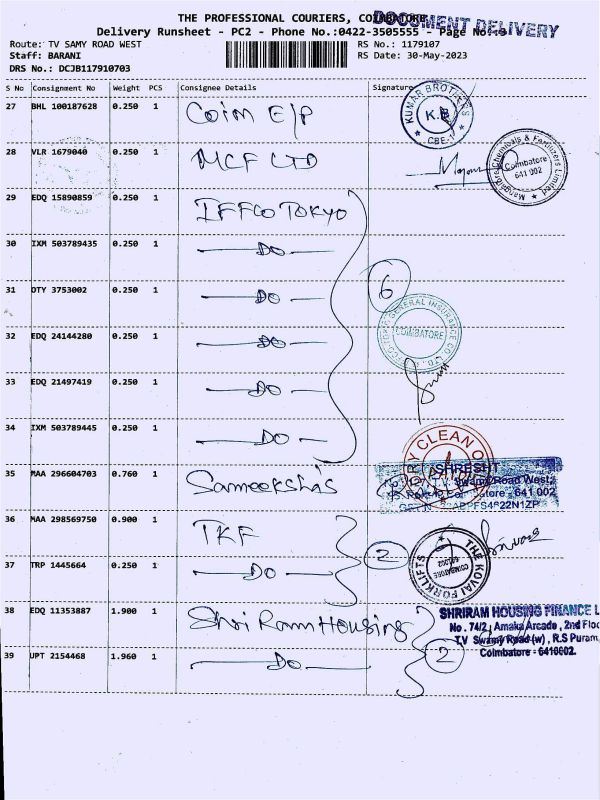 THE PROFESSIONAL COURIERS, COIMBATORE
DOCUMENT DELIVERY
Delivery Runsheet - PC2 - Phone No.:0422-3505555 - Page No:
Route: TV SAMY ROAD WEST
RS No.: 1179107
Staff: BARANI
RS Date: 30-May-2023
DRS No.: DCJB117910703
S No Consignment No Weight PCS Consignee Details Signature
27 BHL 100187628 0.250 1 Coim E/P
KUMAR BROTHERS
K.B
* CBE-1 *
28 VLR 1679040 0.250 1 MCF LTD
Mangalore Chemicals & Fertilizers Limited
Coimbatore
641 002
29 EDQ 15890859 0.250 1 IFFCO TOKYO
30 IXM 503789435 0.250 1 DO
31 OTY 3753002 0.250 1 DO
6
IFFCO-TOKIO GENERAL INSURANCE CO. LTD.
COIMBATORE
32 EDQ 24144280 0.250 1 DO
33 EDQ 21497419 0.250 1 DO
34 IXM 503789445 0.250 1 DO
DRY CLEAN
35 MAA 296604703 0.760 1 Sameeksha's
SHRESHT
T.V. Swamy Road West
641 002
36 MAA 298569750 0.900 1 TKF
2
THE KOVAI FORKLIFTS
COIMBATORE
641002
37 TRP 1445664 0.250 1 DO
38 EDQ 11353887 1.900 1 Shri Ram Housing
SHRIRAM HOUSING FINANCE L
No. 74/2, Amaka Arcade, 2nd Floo
T.V Swamy Road (w), R.S Puram,
Coimbatore - 6410002.
2
39 UPT 2154468 1.960 1 DO